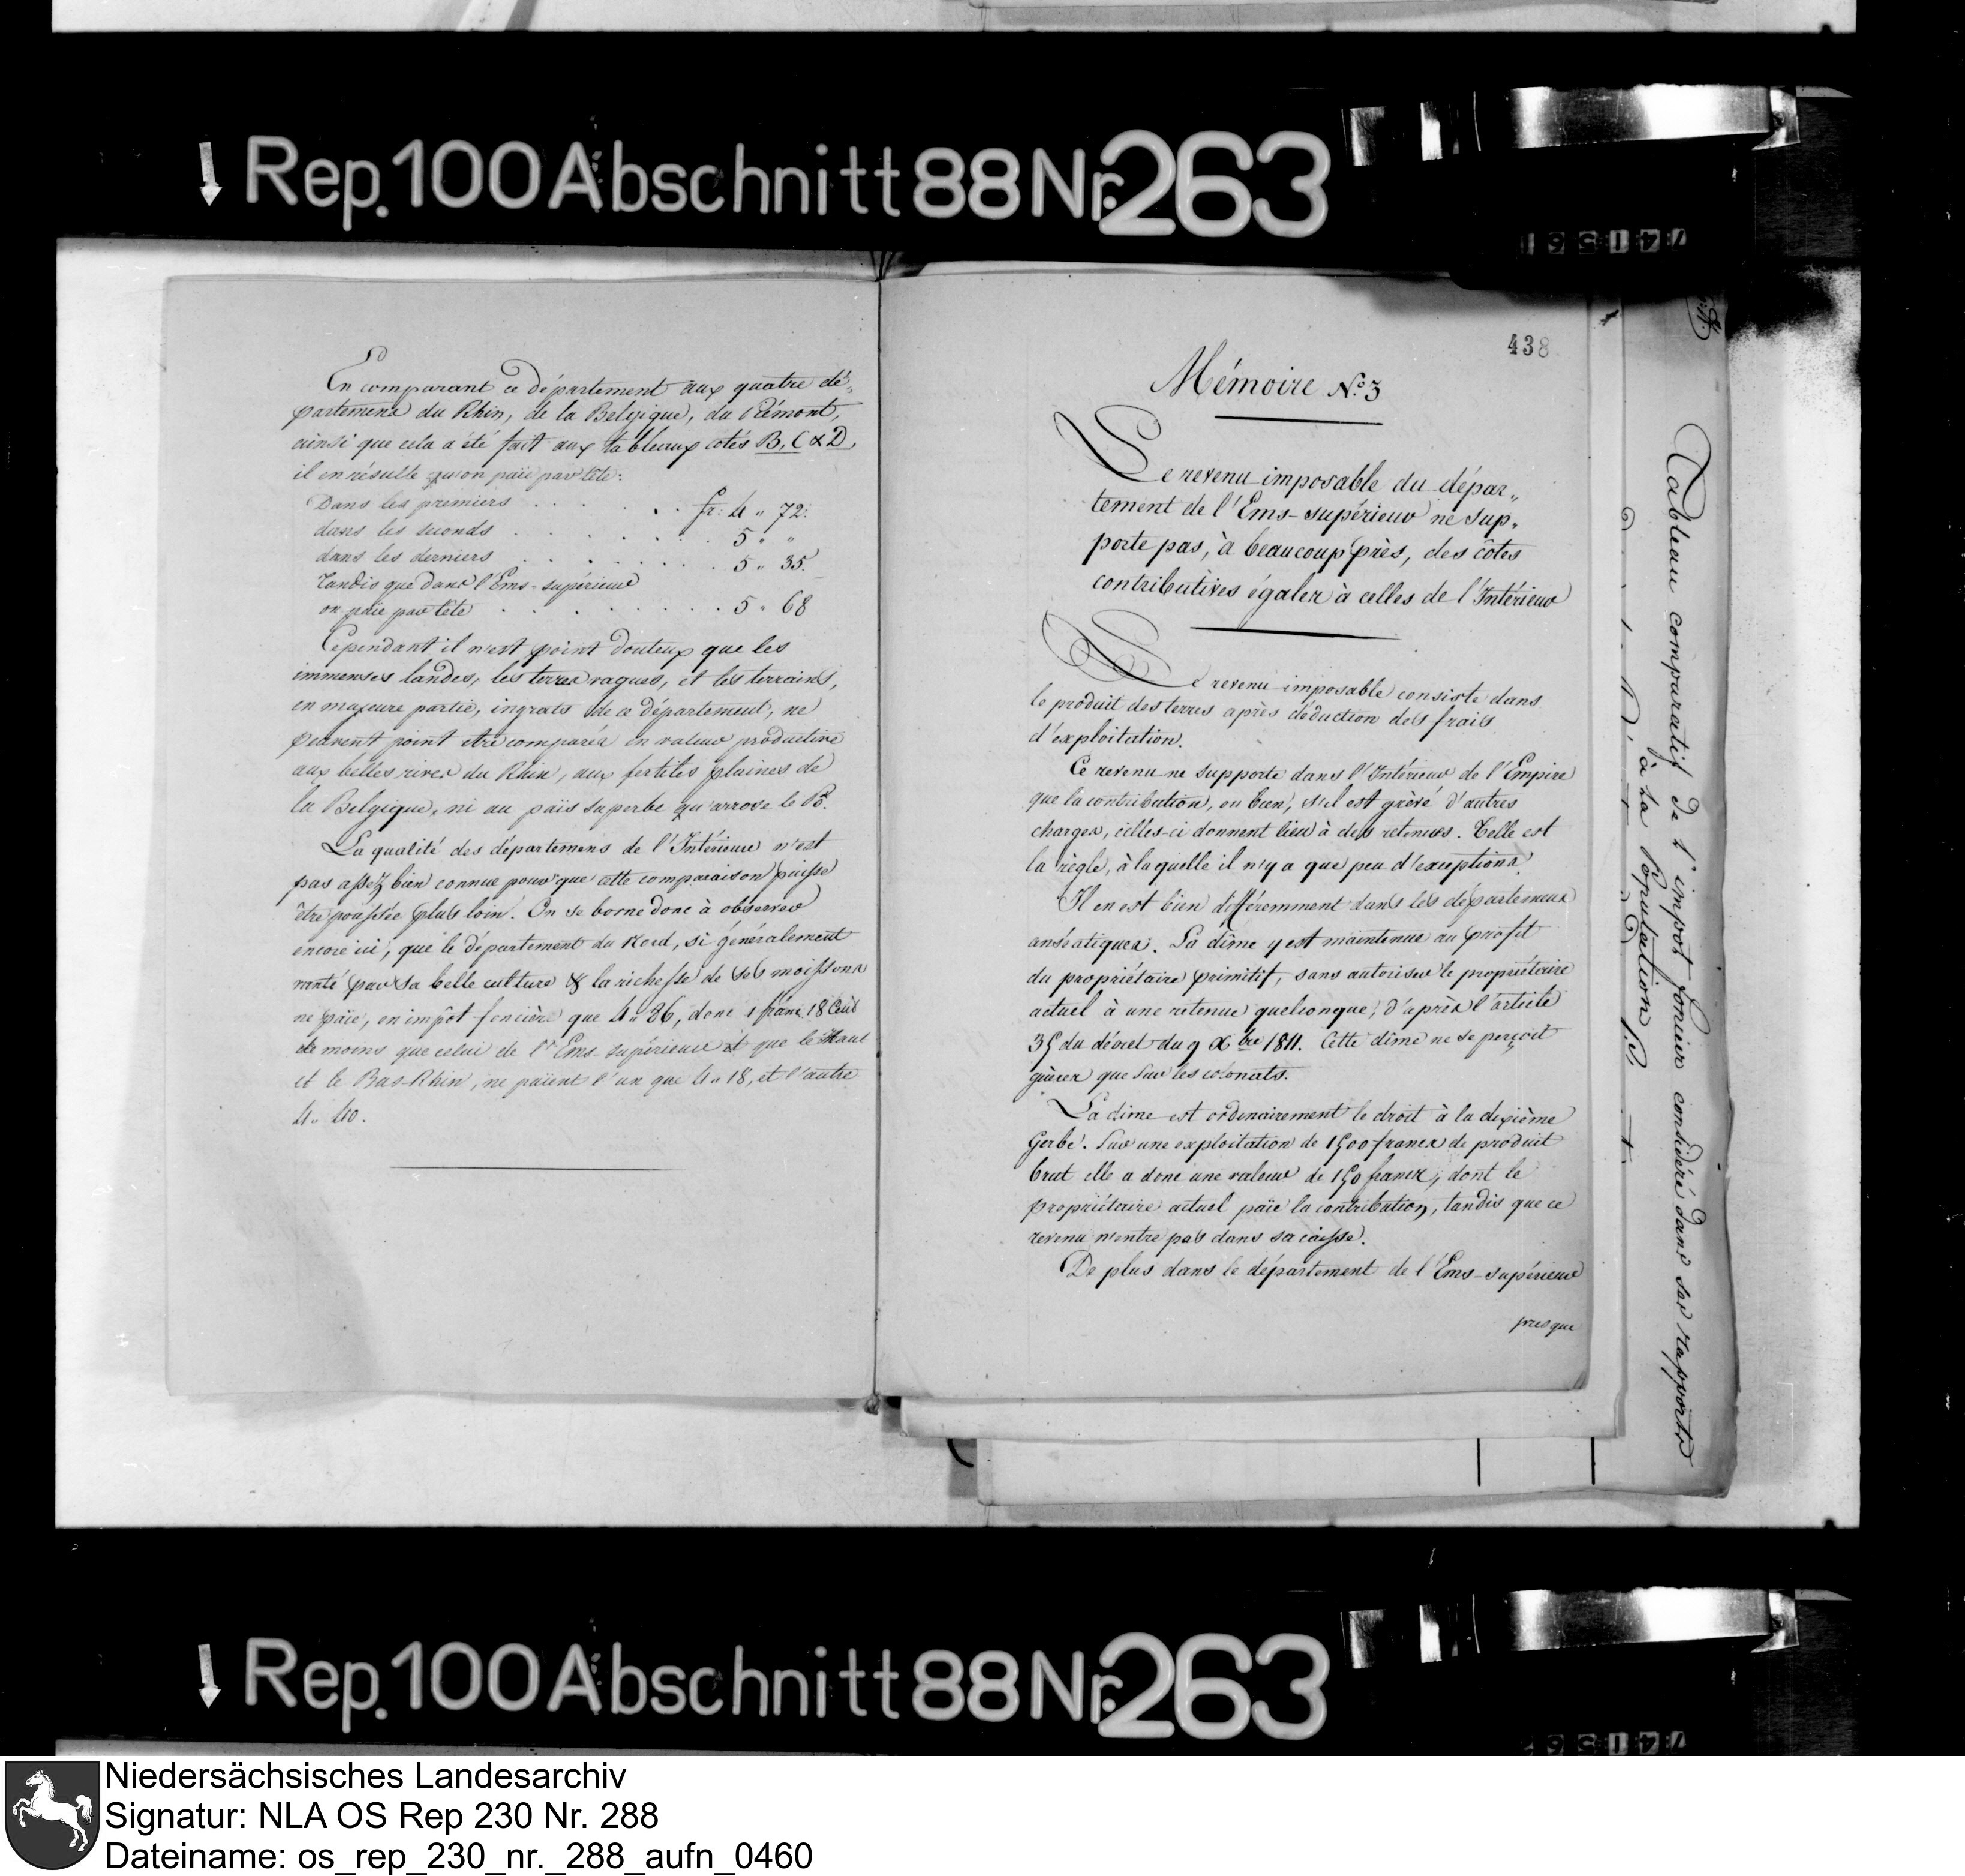 Rep. 100 Abschnitt 88 Nr. 263
En comparant ce département aux quatre dé=
partemens du Rhin, de la Belgique, du Piémont,
ainsi que cela a été fait aux tableaux cotés B, C & D,
il en résulte qu'on païe par tête:
Dans les premiers . . . . . . . fr: 4 „ 72.
dans les seconds . . . . . . . 5 „ „
dans les derniers . . . . . . . 5 „ 35.
Tandis que dans l'Ems-supérieur
on païe par tête . . . . . . . 5 „ 68
Cependant il n'est point douteux que les
immenses landes, les terres vagues, et les terrains,
en majeure partie, ingrats de ce département, ne
peuvent point etre comparés en valeur productive
aux belles rives du Rhin, aux fertiles plaines de
la Belgique, ni au païs superbe qu'arrose le Pô.
La qualité des départemens de l'Intérieur n'est
pas assez bien connue pour que cette comparaison puisse
être poussée plus loin. On se borne donc à observer
encore ici, que le département du Nord, si généralement
vanté par sa belle culture & la richesse de ses moissons
ne païe, en impôt foncière que 4 „ 86, donc 1 franc 18 Cens
de moins que celui de l'Ems-supérieur et que le Haut
et le Bas-Rhin, ne païent l'un que 4 „ 18, et l'autre
4 „ 40.
438
Mémoire No. 3
Le revenu imposable du dépar„
tement de l'Ems-supérieur ne sup„
porte pas, à beaucoup près, des côtes
contributives égales à celles de l'Intérieur
Le revenu imposable consiste dans
le produit des terres après déduction des frais
d'exploitation.
Ce revenu ne supporte dans l'Intérieur de l'Empire
que la contribution, ou bien, s'il est grèvé d'autres
charges, celles-ci donnent lieu à des retenues. Telle est
la règle, à laquelle il n'y a que peu d'exceptions.
Il en est bien différemment dans les départemens
anséatiques. La dîme y est maintenue au profit
du propriétaire primitif, sans autoriser le propriétaire
actuel à une retenue quelconque, d'après l'article
35 du décret du 9 Xbre 1811. Cette dîme ne se perçoit
guères que sur les colonats.
La dîme est ordinairement le droit à la dixième
Gerbe. Sur une exploitation de 1500 francs de produit
brut elle a donc une valeur de 150 francs, dont le
propriétaire actuel païe la contribution, tandis que ce
revenu n'entre pas dans sa caisse.
De plus dans le département de l'Ems-supérieur
presque
Tableau comparatif de l'impot foncier considéré dans ses rapports
à la Population
Rep. 100 Abschnitt 88 Nr. 263
Niedersächsisches Landesarchiv
Signatur: NLA OS Rep 230 Nr. 288
Dateiname: os_rep_230_nr._288_aufn_0460